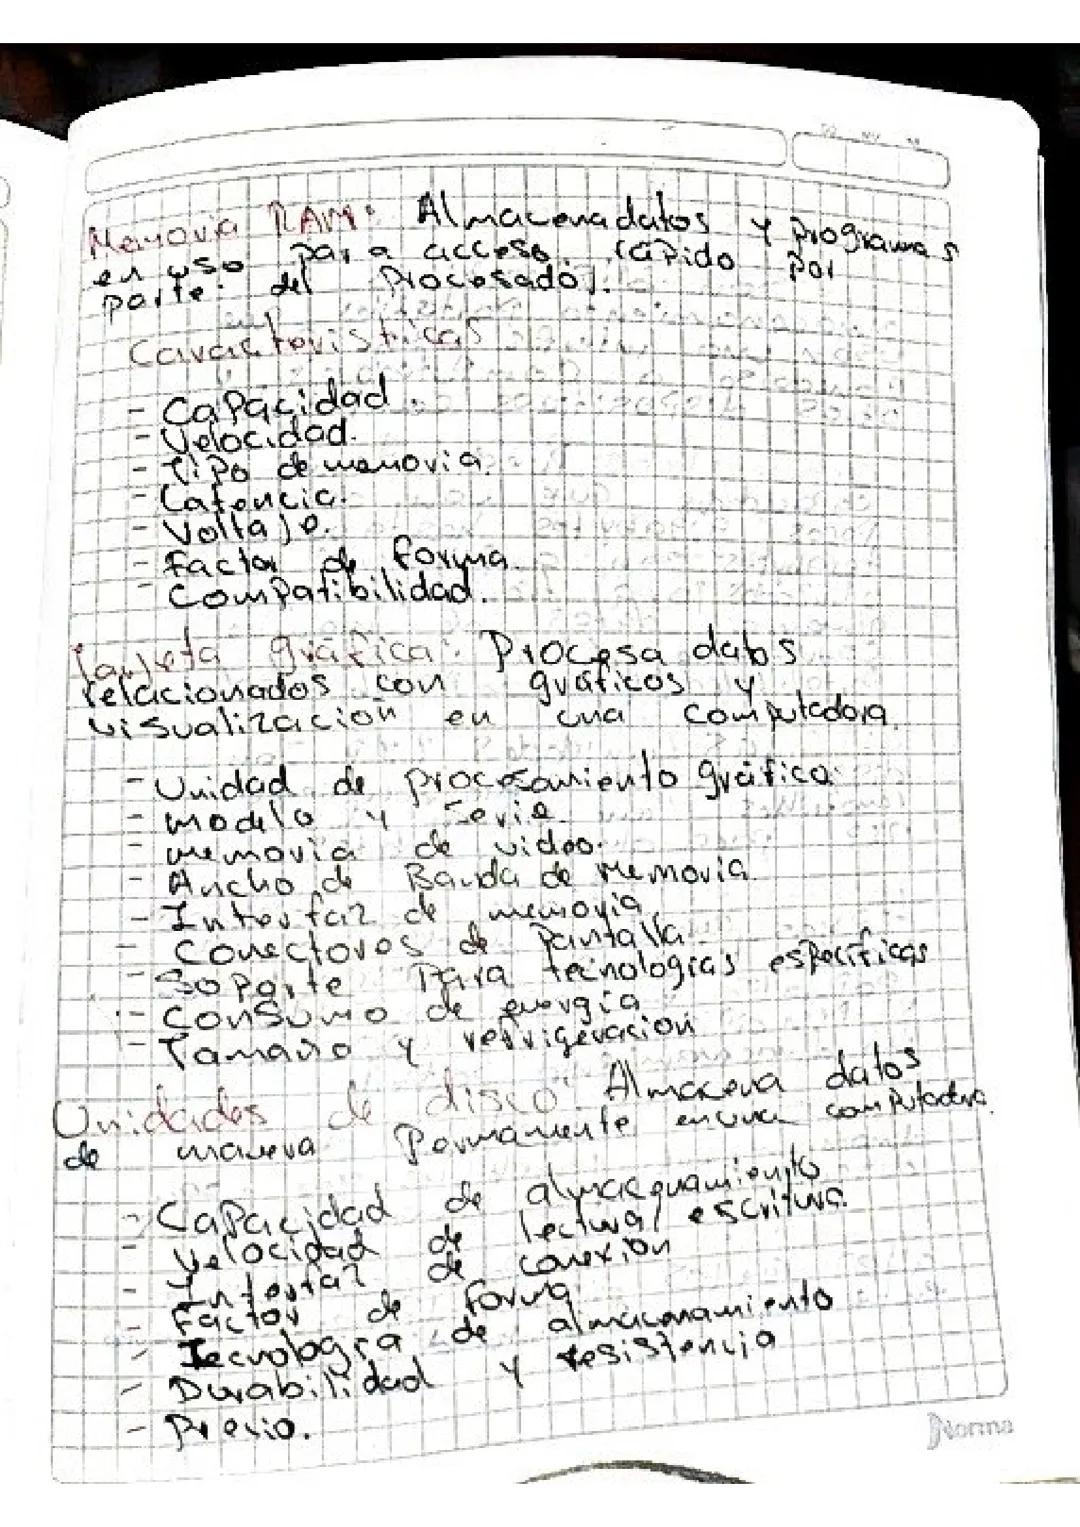 Memoria RAM: Almacena datos y programas
en uso para acceso rápido por
parte del Procesador.
Caracteristicas
- Capacidad.
- Velocidad.
- Tipo de memoria.
- Latencia.
- Voltaje.
- Factor de forma.
- Compatibilidad.
Tarjeta gráfica: Procesa datos
relacionados con gráficos y
visualización en una computadora.
- Unidad de procesamiento gráfica
- modelo y serie.
- memoria de video.
- Ancho de Banda de memoria.
- Interfaz de memoria
- Conectores de Pantalla.
- Soporte Para tecnologías específicas
- Consumo de energia
- Tamaño y refrigeracion
Unidades de disco: Almacena datos
de manera Permanente en una computadora.
- Capacidad de almacenamiento
- Velocidad de lectura/escritura.
- Interfaz de conexion
- Factor de forma
- Tecnologia de almacenamiento
- Durabilidad y resistencia
- Precio.
Norma